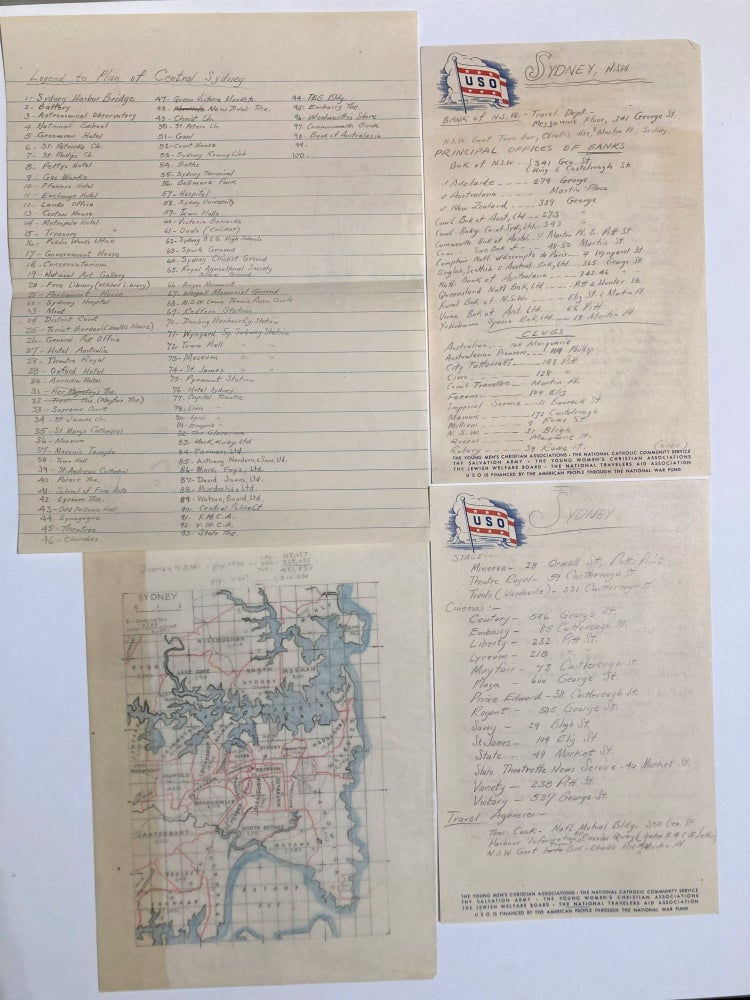 Legend to Plan of Central Sydney
1- Sydney Harbor Bridge
2- Battery
3- Astronomical Observatory
4- National School
5- Grosvenor Hotel
6- St. Patricks Ch.
7- St. Philips Ch.
8- Pettys Hotel
9- Gas Works
10- Pfahlens Hotel
11- Exchange Hotel
12- Lands Office
13- Custom House
14- Metropole Hotel
15- Treasury
16- Public Works Office
17- Government House
18- Conservatorium
19- National Art Gallery
20- Free Library
21- Parliament House
22- Sydney Hospital
23- Mint
24- District Court
25- Tourist Bureau (Challis House)
26- General Post Office
27- Hotel Australia
28- Theatre Royal
29- Oxford Hotel
30- Arcadia Hotel
31- Her Majestys The.
32- Tivoli The. (Mayfair The.)
33- Supreme Court
34- St James Ch.
35- St. Marys Cathedral
36- Museum
37- Masonic Temple
38- Town Hall
39- St Andrews Cathedral
40- Palace The.
41- School of Fine Arts
42- Lyceum The.
43- Odd Fellows Hall
44- Synagogue
45- Theatres
46- Churches
47- Queen Victoria Markets
48- New Tivoli The.
49- Christ Ch.
50- St. Peters Ch.
51- Gaol
52- Court House
53- Sydney Rowing Club
54- Baths
55- Sydney Terminal
56- Belmore Park
57- Hospital
58- Sydney University
59- Town Halls
60- Victoria Barracks
61- Ovals (Cricket)
62- Sydney B. & G. High Schools
63- Sports Ground
64- Sydney Cricket Ground
65- Royal Agricultural Society
Show Ground
66- Anzac Memorial
67- Wagall Memorial Ground
68- N.S.W. Lawn Tennis Assn. Courts
69- Redfern Station
70- Darling Harbour Gy. Station
71- Wynyard Sq. Subway Station
72- Town Hall " "
73- Museum " "
74- St. James " "
75- Pyrmont Station
76- Hotel Sydney
77- Capitol Theatre
78- Civic "
80- Lyric "
81- Empire "
82- The Glacerium
83- Mark Kirby, Ltd
84- Farmers, Ltd.
85- Anthony Horderns, Son, Ltd.
86- Mark Foys, Ltd.
87- David Jones, Ltd.
88- Murdochs, Ltd.
89- Watson, Beard, Ltd.
90- Central Police Ct.
91- Y.M.C.A.
92- Y.W.C.A.
93- State The.
94- T&G Bldg.
95- Embassy The.
96- Woolworths Store
97- Commonwealth Bank
98- Bank of Australasia
99-
100-
USO
SYDNEY, N.SW
BANK of N.S.W. - Travel Dept -
Mezzanine Floor, 341 George St.
N.S.W. Govt Tour Bur, Challis Hse, Martin Pl, Sidney.
PRINCIPAL OFFICES OF BANKS
Bak of N.S.W. - 341 Geo. St.
King & Castelreagh Sts
Adelaide ---- 279 George
Australasia ---- Martin Place
New Zealand ---- 339 George
Coml. Bank of Aust, Ltd --- 273 "
Coml. Bakg. Co of Syd, Ltd -- 343 "
Commonwlth Bnk of Austrl. - Martin Pl. & Pitt St
48-50 Martin St
Comptoir Natl. d'Escompte de Paris -- 4 Wynyard St.
English, Scottish & Austral. Bnk, Ltd -- 365 George St.
Natl. Bank of Australasia --- 342-46 " "
Queensland Natl Bnk, Ltd --- Pitt & Hunter Sts.
Rural Bnk of N.S.W. --- Eliz St & Martin Pl.
Union Bnk of Aust. Ltd. --- 68 Pitt
Yokohama Specie Bnk, Ltd --- 18 Martin Pl.
CLUBS
Australian --- 166 Macquarie
Australasian Pioneers -- 184 Phillip
City Tattersalls -- 198 Pitt
Civic ---- 128 "
Coml. Travellers - Martin Pl.
Forum --- 109 Eliz
Imperial Service -- 11 Barrack St
Masonic --- 171 Castelreagh
Million -- 9 Rowe St
N.S.W. -- 31 Bligh
Queens -- Macquarie St
Rotary -- 39 Rowe St.
(over)
THE YOUNG MEN'S CHRISTIAN ASSOCIATIONS • THE NATIONAL CATHOLIC COMMUNITY SERVICE
THE SALVATION ARMY • THE YOUNG WOMEN'S CHRISTIAN ASSOCIATIONS
THE JEWISH WELFARE BOARD • THE NATIONAL TRAVELERS AID ASSOCIATION
USO IS FINANCED BY THE AMERICAN PEOPLE THROUGH THE NATIONAL WAR FUND
USO
SYDNEY
STAGE:-
Minerva - 28 Orwall St, Potts Point
Theatre Royal - 59 Castlereagh St.
Tivoli (Vaudeville) - 331 Castlereagh St.
Cinemas:-
Century - 586 George St.
Embassy - 85 Castlereagh St.
Liberty - 232 Pitt St.
Lyceum - 218 " "
Mayfair - 73 Castlereagh St
Plaza - 600 George St.
Prince Edward - 38 Castlereagh St.
Regent - 505 George St.
Savoy - 29 Bligh St.
St James - 109 Eliz St.
State - 49 Market St.
State Theatrette News Service - 40 Market St.
Variety - 238 Pitt St.
Victory - 587 George St.
Travel Agencies:-
Thos. Cook - Natl Mutual Bldg. 350 Geo. St
Harbour Information, Circular Quay
N.S.W. Govt Tourist Bur. - Challis Hse, Martin Pl.
THE YOUNG MEN'S CHRISTIAN ASSOCIATIONS • THE NATIONAL CATHOLIC COMMUNITY SERVICE
THE SALVATION ARMY • THE YOUNG WOMEN'S CHRISTIAN ASSOCIATIONS
THE JEWISH WELFARE BOARD • THE NATIONAL TRAVELERS AID ASSOCIATION
USO IS FINANCED BY THE AMERICAN PEOPLE THROUGH THE NATIONAL WAR FUND
SYDNEY, N.S.W.
SYDNEY
WILLOUGHBY
RYDE
LANE COVE
NORTH
SYDNEY
MOSMAN
MANLY
ASHFIELD
SYDNEY
MARRICKVILLE
CANTERBURY
BOTANY
BOTANY
BAY